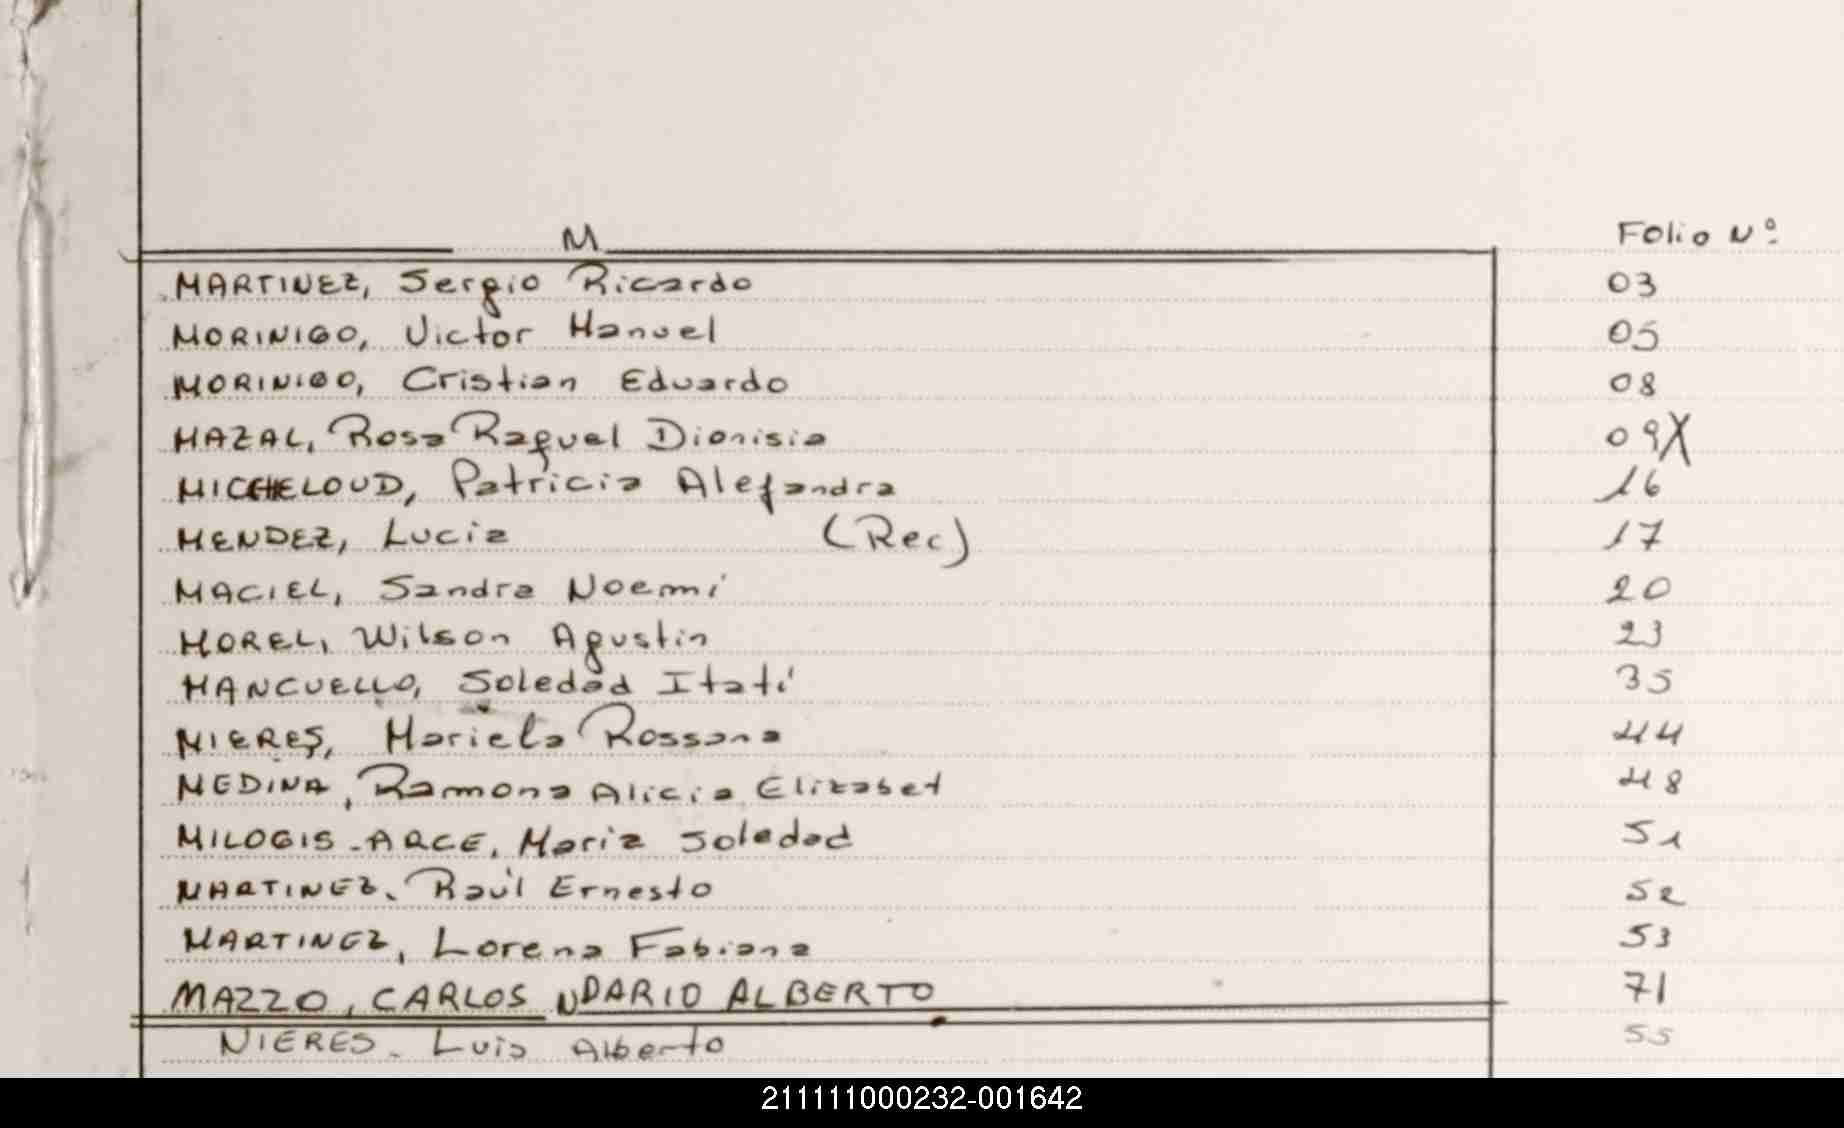 M Folio Nº
MARTINEZ, Sergio Ricardo 03
MORINIGO, Victor Manuel 05
MORINIGO, Cristian Eduardo 08
MAZAL, Rosa Raquel Dionisia 09X
MICHELOUD, Patricia Alejandra 16
MENDEZ, Lucia (Rec) 17
MACIEL, Sandra Noemí 20
MOREL, Wilson Agustin 23
MANCUELLO, Soledad Itatí 35
MIERES, Mariela Rossana 44
MEDINA, Ramona Alicia Elizabet 48
MILOGIS-ARCE, Maria Soledad 51
MARTINEZ, Raúl Ernesto 52
MARTINEZ, Lorena Fabiana 53
MAZZO, CARLOS DARIO ALBERTO 71
N
NIERES, Luis Alberto 55
211111000232-001642